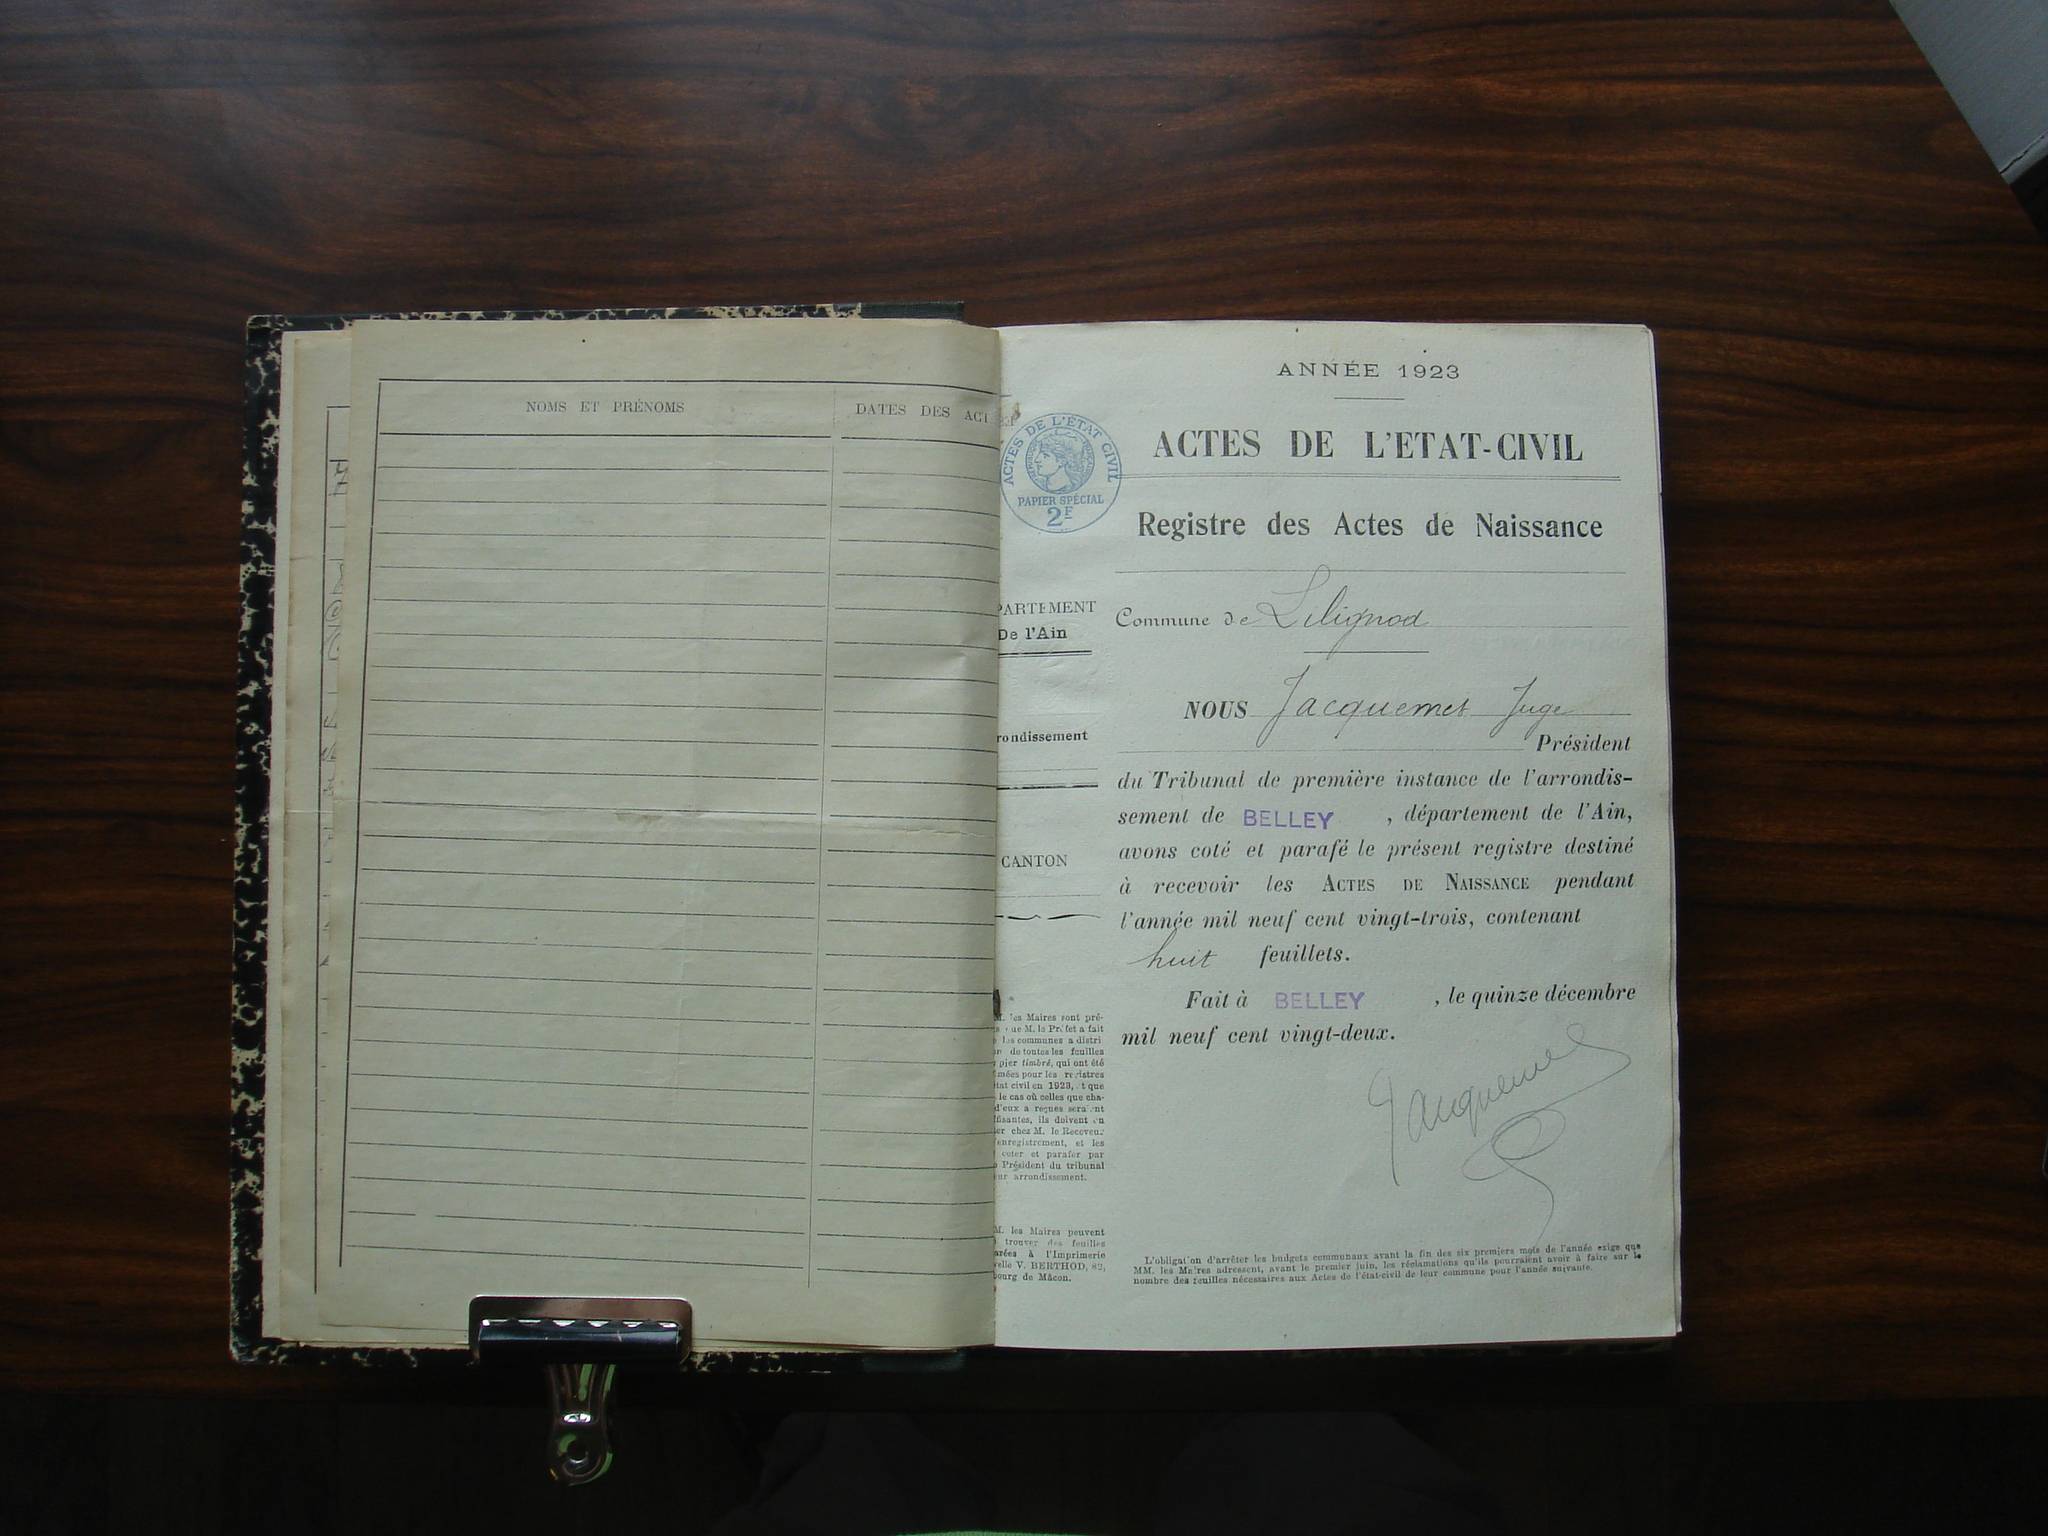 NOMS ET PRÉNOMS
DATES DES ACT
ANNÉE 1923
ACTES DE L'ÉTAT CIVIL
RÉPUBLIQUE FRANÇAISE
PAPIER SPÉCIAL
2F
ACTES DE L'ETAT-CIVIL
Registre des Actes de Naissance
PARTEMENT
De l'Ain
Commune de Lilignod
NOUS Jacquemet Juge
Président
rondissement
du Tribunal de première instance de l'arrondis-
sement de BELLEY , département de l'Ain,
avons coté et parafé le présent registre destiné
CANTON
à recevoir les ACTES DE NAISSANCE pendant
l'année mil neuf cent vingt-trois, contenant
huit feuillets.
Fait à BELLEY , le quinze décembre
mil neuf cent vingt-deux.
Jacquemet
M. les Maires sont pré-
que M. le Préfet a fait
les communes a distri
de toutes les feuilles
pier timbré, qui ont été
mées pour les registres
tat civil en 1923, et que
le cas où celles que cha-
d'eux a reçues seraient
ffisantes, ils doivent en
er chez M. le Receveur
enregistrement, et les
coter et parafer par
Président du tribunal
eur arrondissement.
M. les Maires peuvent
trouver des feuilles
arées à l'Imprimerie
velle V. BERTHOD, 82,
bourg de Mâcon.
L'obligation d'arrêter les budgets communaux avant la fin des six premiers mois de l'année exige que
MM. les Maires adressent, avant le premier juin, les réclamations qu'ils pourraient avoir à faire sur le
nombre des feuilles nécessaires aux Actes de l'état-civil de leur commune pour l'année suivante.